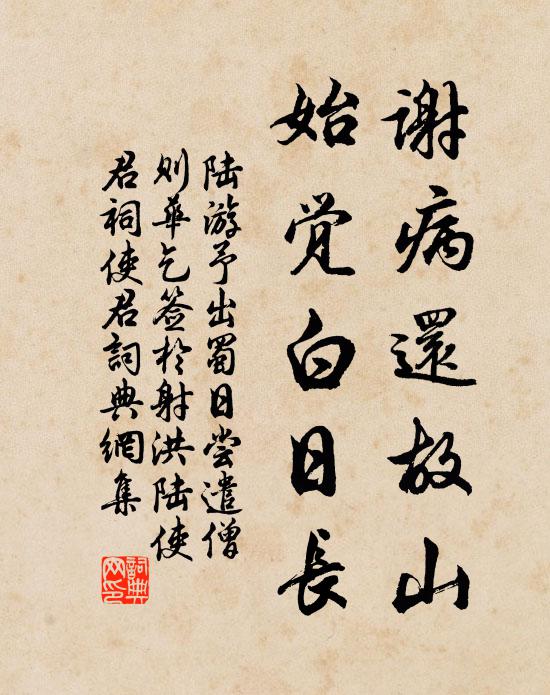 謝病還故山
始觉白日長
陆游予出蜀日尝遣僧
则華乞签於射洪陆使
君祠使君詞典網集
詞典
网印